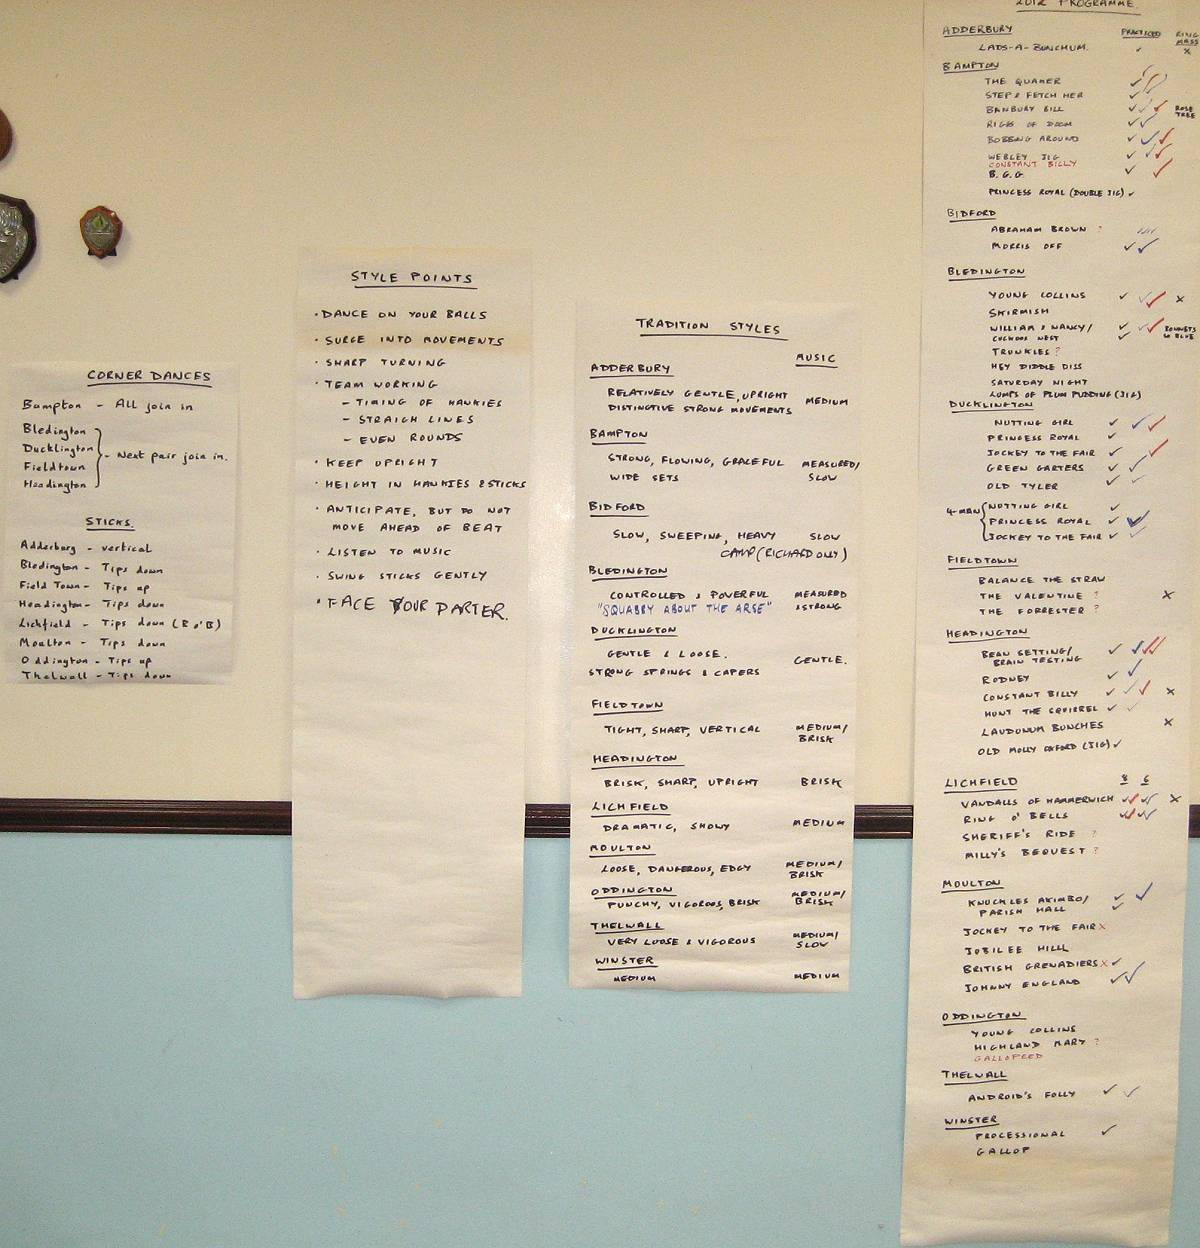 CORNER DANCES
Bampton - All join in
Bledington
Ducklington
Fieldtown
Headington
- Next pair join in.
STICKS.
Adderbury - vertical
Bledington - Tips down
Field Town - Tips up
Headington - Tips down
Lichfield - Tips down (R o'B)
Moulton - Tips down
Oddington - Tips up
Thelwall - Tips down
STYLE POINTS
· DANCE ON YOUR BALLS
· SURGE INTO MOVEMENTS
· SHARP TURNING
· TEAM WORKING
- TIMING OF HANKIES
- STRAIGH LINES
- EVEN ROUNDS
· KEEP UPRIGHT
· HEIGHT IN HANKIES & STICKS
· ANTICIPATE, BUT DO NOT
MOVE AHEAD OF BEAT
· LISTEN TO MUSIC
· SWING STICKS GENTLY
· FACE YOUR PARTER.
TRADITION STYLES
MUSIC
ADDERBURY
RELATIVELY GENTLE, UPRIGHT
DISTINCTIVE STRONG MOVEMENTS MEDIUM
BAMPTON
STRONG, FLOWING, GRACEFUL MEASURED/
WIDE SETS SLOW
BIDFORD
SLOW, SWEEPING, HEAVY SLOW
CAMP (RICHARD ONLY)
BLEDINGTON
CONTROLLED & POWERFUL MEASURED
"SQUABBY ABOUT THE ARSE" & STRONG
DUCKLINGTON
GENTLE & LOOSE.
GENTLE.
STRONG SPRINGS & CAPERS
FIELDTOWN
TIGHT, SHARP, VERTICAL MEDIUM/
BRISK
HEADINGTON
BRISK, SHARP, UPRIGHT BRISK
LICHFIELD
DRAMATIC, SHOWY MEDIUM
MOULTON
LOOSE, DANGEROUS, EDGY MEDIUM/
BRISK
ODDINGTON MEDIUM/
PUNCHY, VIGOROUS, BRISK BRISK
THELWALL
VERY LOOSE & VIGOROUS MEDIUM/
SLOW
WINSTER
MEDIUM MEDIUM
2012 PROGRAMME
ADDERBURY PRACTICED RING MASS
LADS-A-BUNCHUM. ✓ x
BAMPTON
THE QUAKER ✓
STEP & FETCH HER ✓✓
BANBURY BILL ✓✓✓ ROSE TREE
RIGGS OF DOOM ✓✓
BOBBING AROUND ✓✓✓
WEBLEY JIG ✓✓✓
CONSTANT BILLY
B. G. G. ✓ ✓
PRINCESS ROYAL (DOUBLE JIG) ✓
BIDFORD
ABRAHAM BROWN ?
MORRIS OFF ✓✓
BLEDINGTON
YOUNG COLLINS ✓ ✓✓ x
SKIRMISH
WILLIAM & NANCY/ ✓ ✓✓ BONNETS SO BLUE
CUCKOOS NEST ✓
TRUNKLES ?
HEY DIDDLE DISS
SATURDAY NIGHT
LUMPS OF PLUM PUDDING (JIG)
DUCKLINGTON
NUTTING GIRL ✓ ✓ ✓
PRINCESS ROYAL ✓
JOCKEY TO THE FAIR ✓ ✓
GREEN GARTERS ✓ ✓
OLD TYLER ✓ ✓
4-MAN
NUTTING GIRL ✓
PRINCESS ROYAL ✓ ✓
JOCKEY TO THE FAIR ✓ ✓
FIELDTOWN
BALANCE THE STRAW
THE VALENTINE ? x
THE FORRESTER ?
HEADINGTON
BEAN SETTING/ ✓ ✓✓✓
BRAIN TESTING
RODNEY ✓ ✓
CONSTANT BILLY ✓ ✓ ✓ x
HUNT THE SQUIRREL ✓ ✓
LAUDUNUM BUNCHES x
OLD MOLLY OXFORD (JIG) ✓
LICHFIELD 8 6
VANDALLS OF HAMMERWICH ✓✓ ✓✓ x
RING O' BELLS ✓✓ ✓✓
SHERIFF'S RIDE ?
MILLY'S BEQUEST ?
MOULTON
KNUCKLES AKIMBO/ ✓ ✓
PARISH HALL ✓
JOCKEY TO THE FAIR x
JUBILEE HILL
BRITISH GRENADIERS x ✓
JOHNNY ENGLAND ✓✓
ODDINGTON
YOUNG COLLINS
HIGHLAND MARY ?
THELWALL
ANDROID'S FOLLY ✓ ✓
WINSTER
PROCESSIONAL ✓
GALLOP